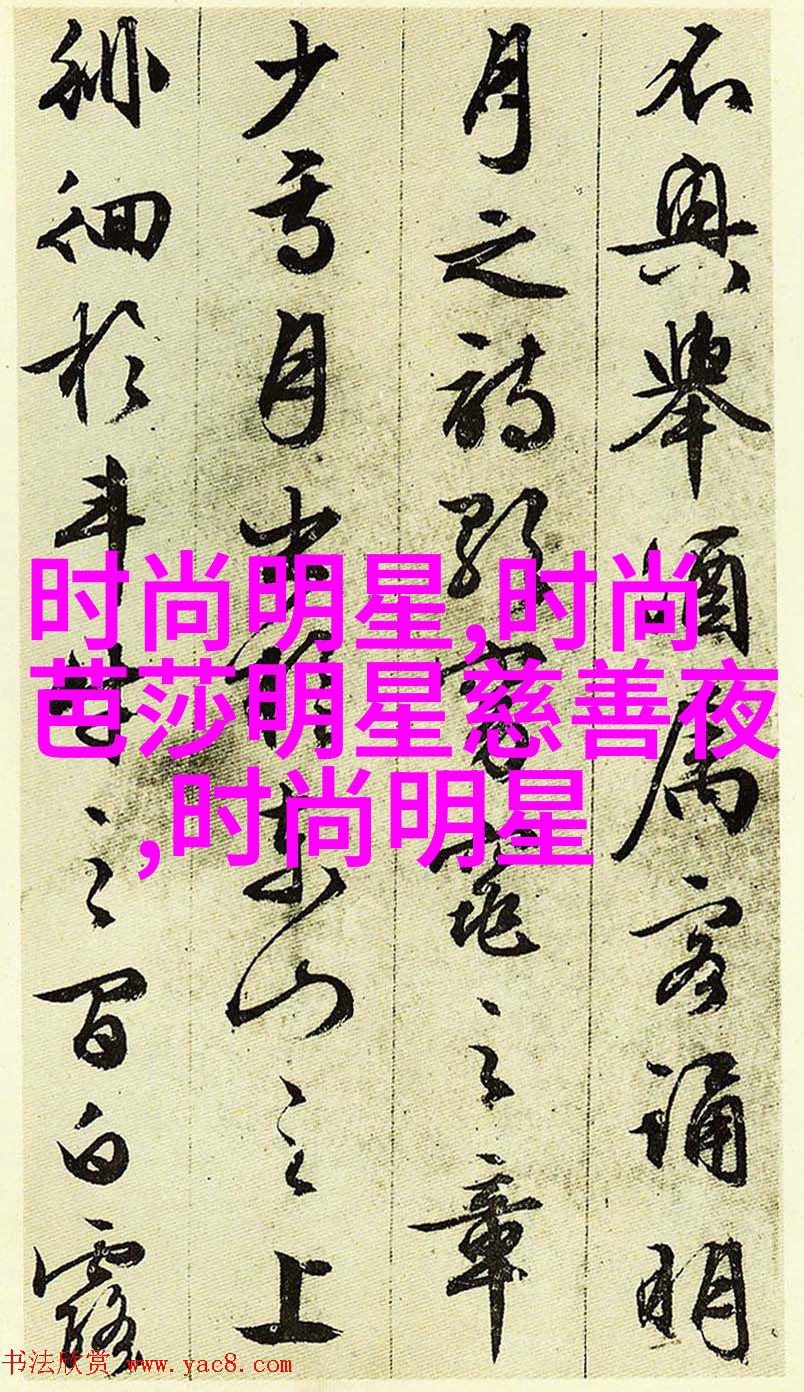 不興舉酒属客誦明
月之詩歌窈窕之章
少焉月出於東山之上
徘徊於斗牛之間白露
时尚明星,时尚
芭莎明星慈善夜
,时尚明星
书法欣赏 www.yac8.com